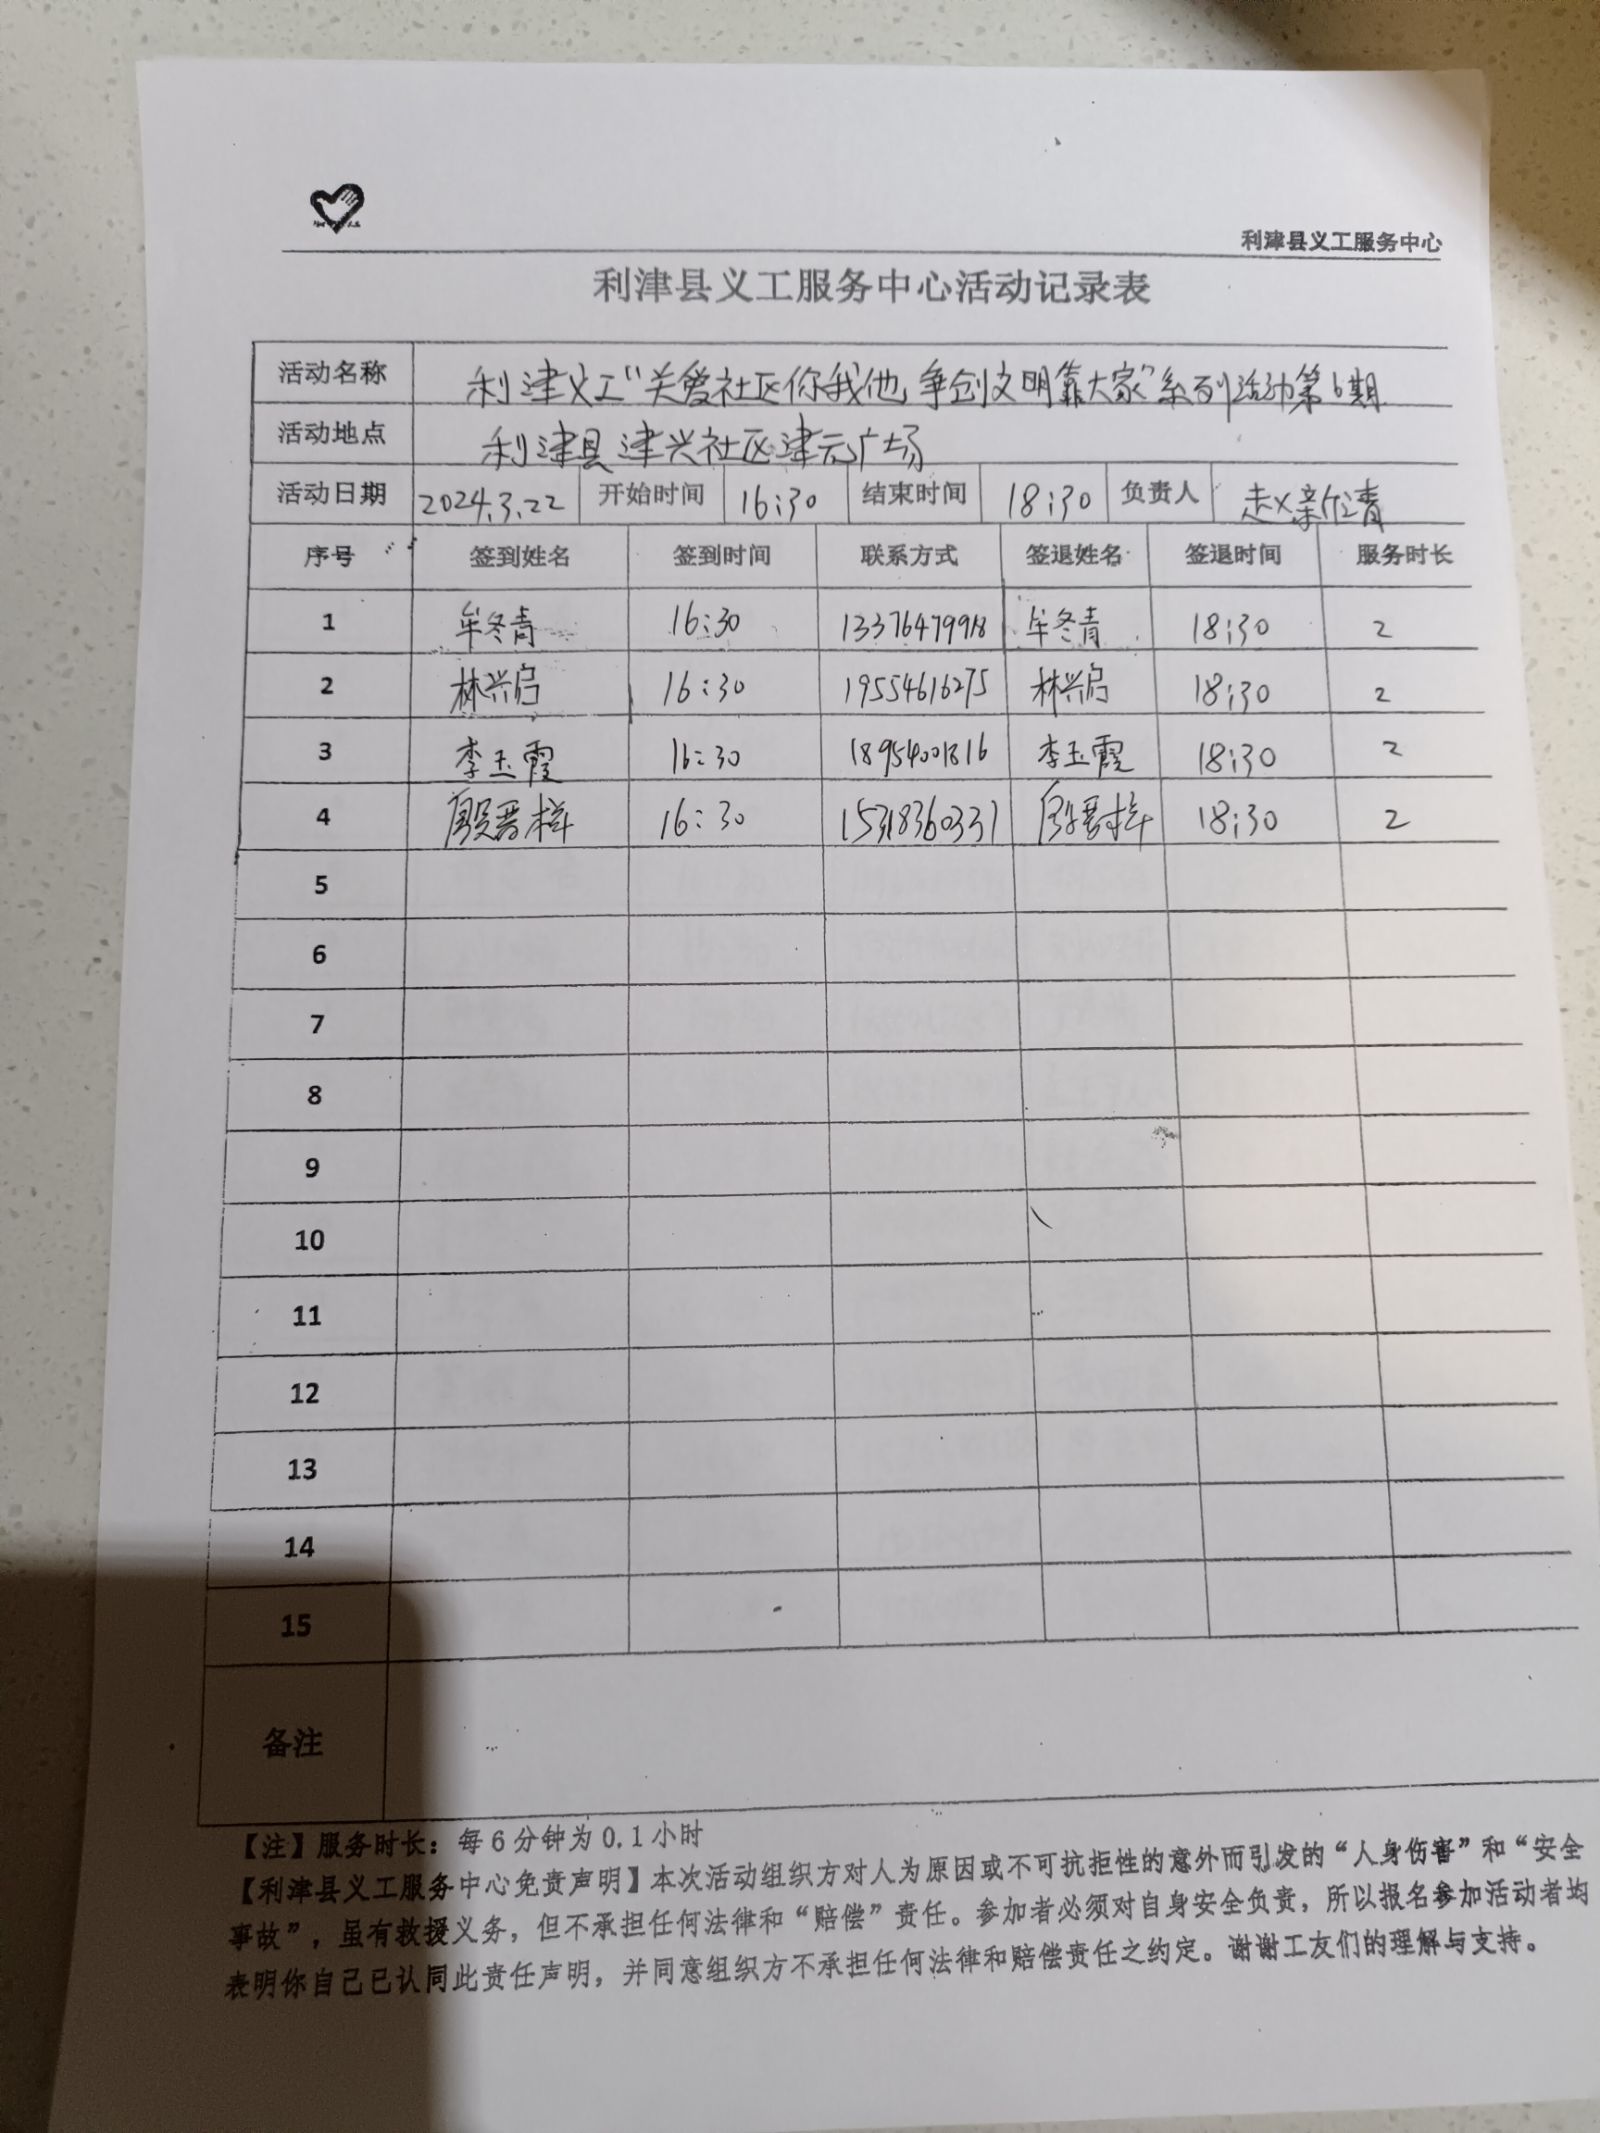 利津县义工服务中心
利津县义工服务中心活动记录表
活动名称 利津义工“关爱社区你我他,争创文明靠大家”系列活动第6期
活动地点 利津县津兴社区津元广场
活动日期 2024.3.22 开始时间 16:30 结束时间 18:30 负责人
序号 签到姓名 签到时间 联系方式 签退姓名 签退时间 服务时长
1 牟冬青 16:30 13376479918 牟冬青 18:30 2
2 林兴启 16:30 19554616275 林兴启 18:30 2
3 李玉霞 16:30 18954001816 李玉霞 18:30 2
4 16:30 15318360331 18:30 2
5
6
7
8
9
10
11
12
13
14
15
备注
【注】服务时长：每6分钟为0.1小时
【利津县义工服务中心免责声明】本次活动组织方对人为原因或不可抗拒性的意外而引发的“人身伤害”和“安全
事故”，虽有救援义务，但不承担任何法律和“赔偿”责任。参加者必须对自身安全负责，所以报名参加活动者均
表明你自己已认同此责任声明，并同意组织方不承担任何法律和赔偿责任之约定。谢谢工友们的理解与支持。